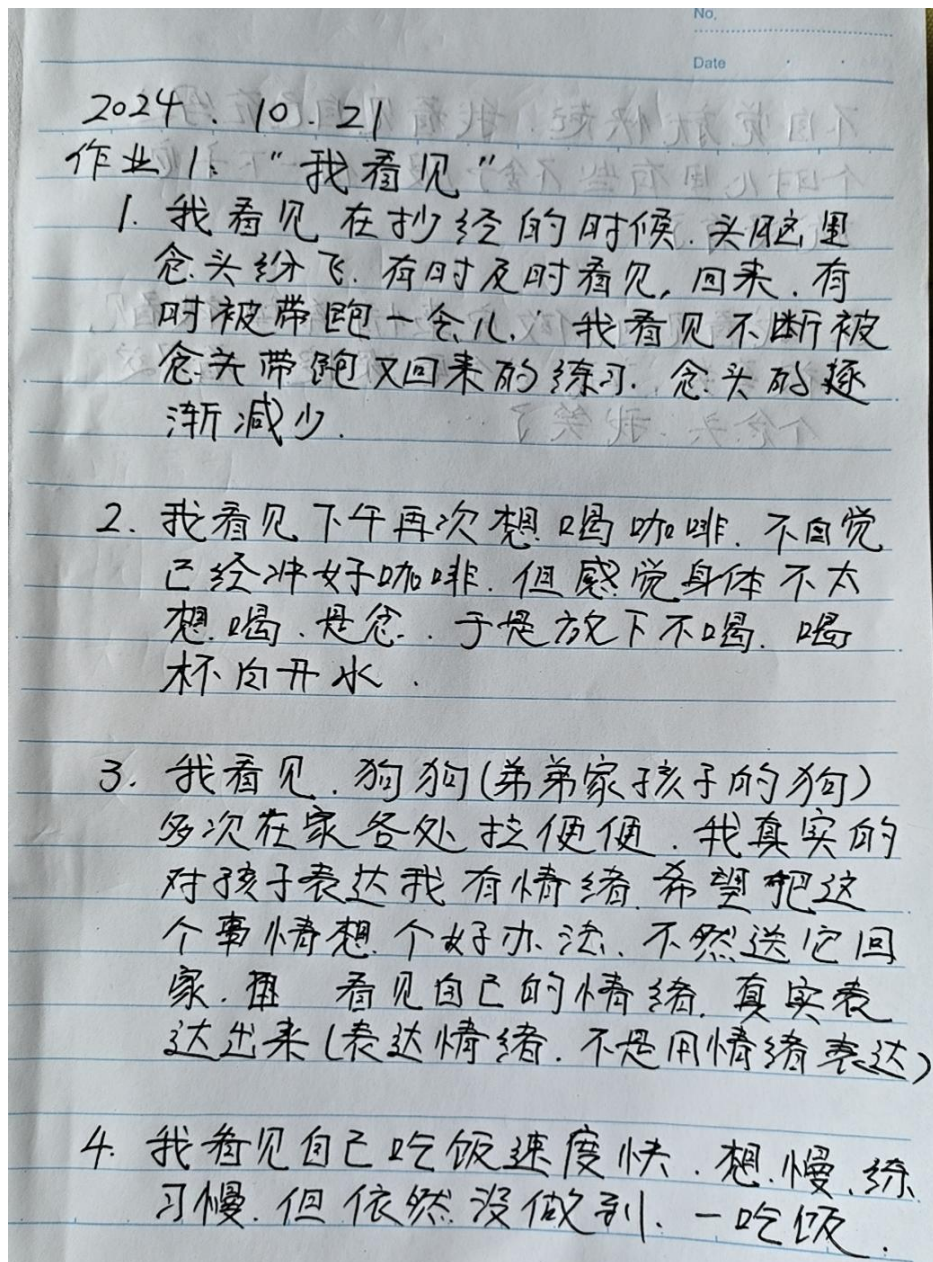 No.
Date
2024.10.21
作业1:“我看见”
1. 我看见在抄经的时候.头脑里
念头纷飞.有时及时看见,回来.有
时被带跑一会儿.我看见不断被
念头带跑又回来的练习.念头的逐
渐减少.
2. 我看见下午再次想喝咖啡.不自觉
已经冲好咖啡.但感觉身体不太
想喝.是念..于是放下不喝.喝
杯白开水.
3. 我看见.狗狗(弟弟家孩子的狗)
多次在家各处拉便便.我真实的
对孩子表达我有情绪.希望把这
个事情想个好办法、不然送它回
家. 看见自己的情绪.真实表
达出来(表达情绪.不是用情绪表达)
4. 我看见自己吃饭速度快.想慢.练
习慢.但依然没做到.一吃饭.